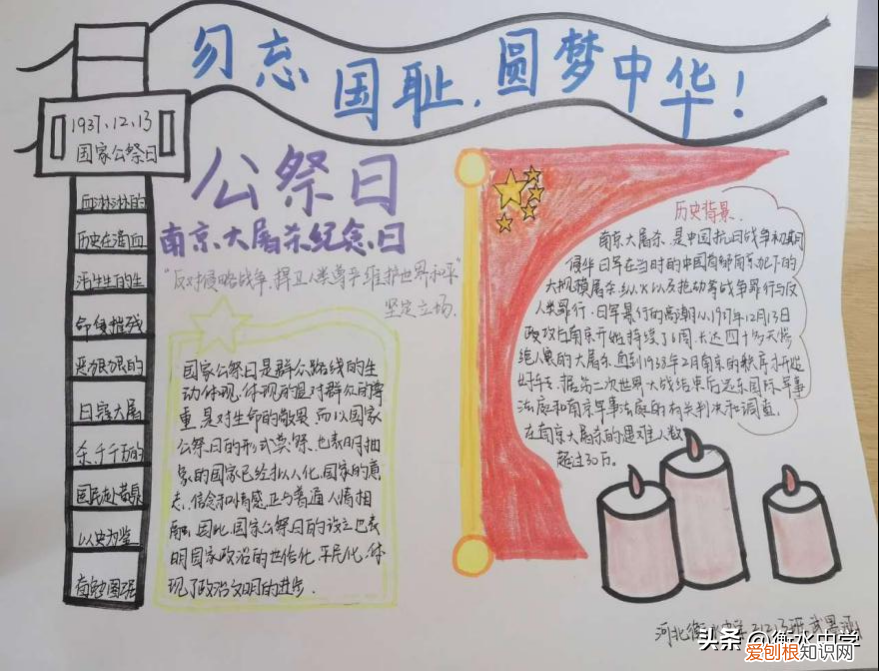 勿忘国耻,圆梦中华!
1937.12.13
国家公祭日
公祭日
南京大屠杀纪念日
"反对侵略战争,捍卫人类尊严,维护世界和平"
坚定立场.
血淋淋的
历史在滴血
活生生的生
命像摧残
恶狠狠的
日寇大屠
杀,千千万的
国民赴黄泉
以史为鉴
奋勉图强
国家公祭日是群公路线的生
动体现,体现的是对群众的尊
重,是对生命的敬畏.而以国家
公祭日的形式祭祭,也表明抽
象的国家已经拟人化,国家的意
志、信念和情感正与普通人情相
融.因此,国家公祭日的设立也表
明国家政治的世俗化、平民化,体
现了政治文明的进步.
历史背景.
南京大屠杀,是中国抗日战争初期
侵华日军在当时的中国首都南京犯下的
大规模屠杀、
等战争罪行与反
人类罪行.日军暴行的高潮从1937年12月13日
攻占后南京开始持续了6周,长达四十多天惨
绝人寰的大屠杀,直到1938年2月南京的秩序才开始
好转.据第二次世界大战结束后远东国际军事
法庭和南京军事法庭的有关判决和调查,
在南京大屠杀的遇难人数
超过30万.
河北衡水中学
头条 @衡水中学
爱刨根知识网